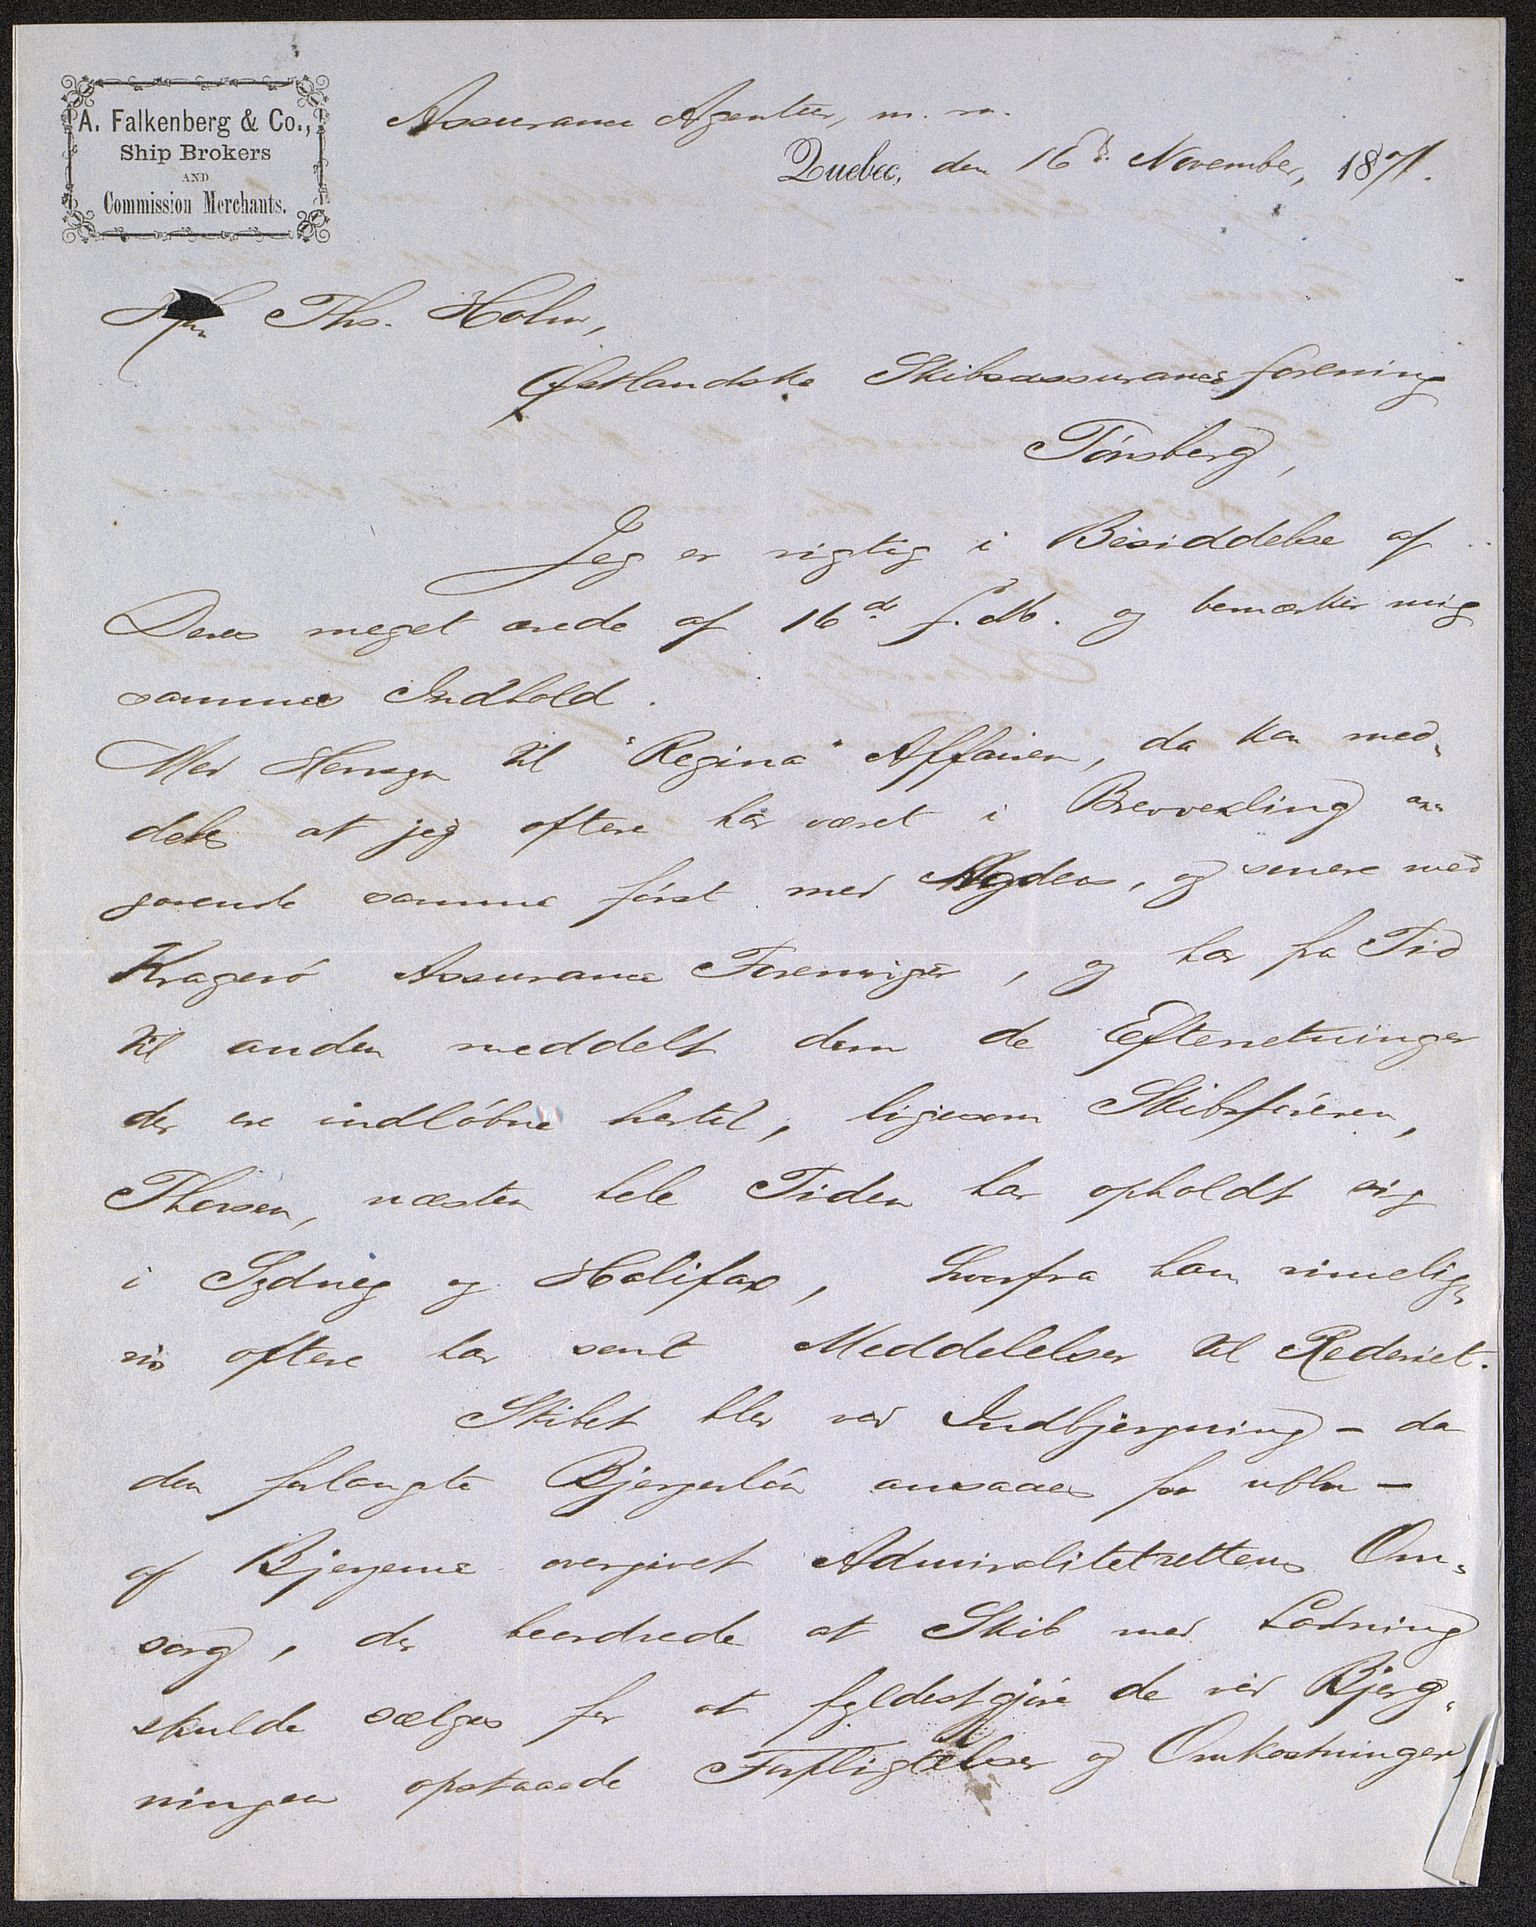 A. Falkenberg & Co.,
Ship Brokers
AND
Commission Merchants.
Assurance Agentur, m. m.
Quebec, den 16d. November, 1871.
Ths. Holm,
Østlandske Skibsassuranceforening
Tönsberg,
Jeg er rigtig i Besiddelse af
Deres meget ærede af 16de f. M. og bemærker mig
sammes Indhold.
Med Hensyn til "Regina" Affairen, da kan med-
deles at jeg oftere har været i Brevvexling an-
gaaende samme först med Agders, og senere med
Kragerö Assurance Foreninger, og har fra Tid
til anden meddelt dem de Efterretninger
der ere indlöbne hertil, ligesom Skibsföreren,
Thorsen, næsten hele Tiden har opholdt sig
i Sydney og Halifax, hvorfra han rimelig-
vis oftere har sent Meddelelser til Rederiet.
Skibet blev ved Indbjergning – da
den forlangte Bjergerlön ansaaes for ublu –
af Bjergerne overgivet Admiralitetsrettens Om-
sorg, der beordrede at Skib med Ladning
skulde sælges for at fyldestgjöre de ved Bjerg-
ningen opstaaede Forpligtelser og Omkostninger,